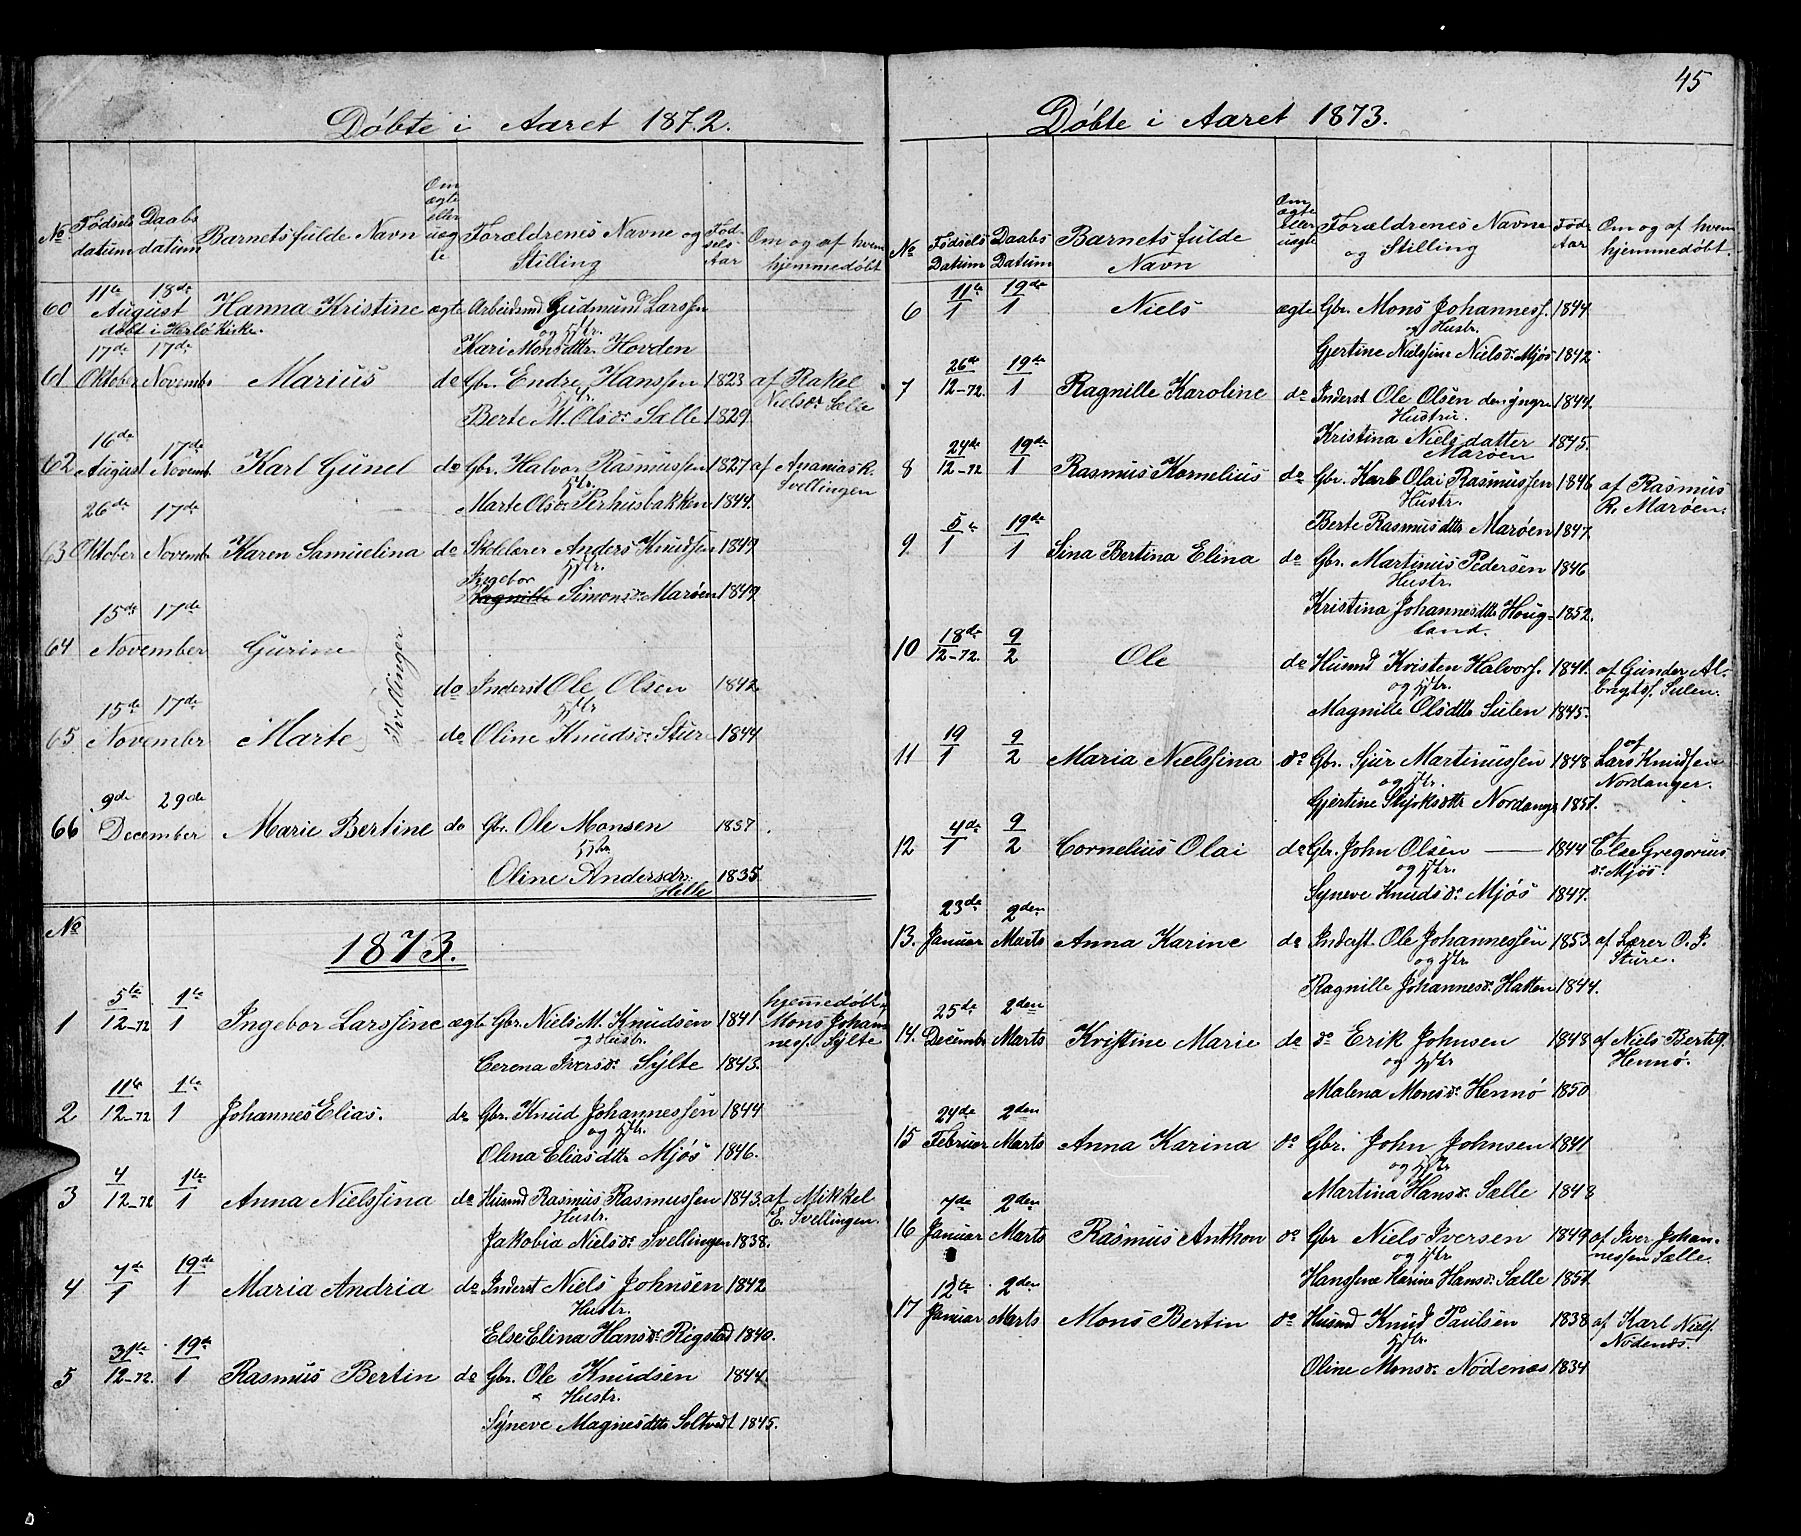 Døbte i Aaret 1872.
No Fødsels datum Daabs datum Barnets fulde Navn Om ægte eller uægte Forældrenes Navne og Stilling Fødsels Aar Om og af hvem hjemmedøbt
60 11te August 18de Hanna Kristine ægte Arbeidsmd Gudmund Larssen
døbt i Herlø Kirke. og Hstr.
Kari Monsdttr. Hovden
61 17de Oktober 17de Novembr Marius do Gbr. Endre Hanssen 1823 af Rakel
Hstr. Nielsdr Sælle
Berte M. Olsdr Sælle 1829
62 16de August 17de Novemb Karl Gunel do Gbr. Halvor Rasmussen 1827 af Ananias R.
Hstr. Svellingen
Marte Olsdr Perhusbakken 1844.
63 26de Oktober 17de Novembr Karen Samuelina do Skolelærer Anders Knudsen 1849
Ingebor Hstr.
Ragnille Simonsdr Marøen 1849
64 15de November 17de Gurine
Tvillinger
do Inderst Ole Olsen 1842.
Hstr
65 15de November 17de Marte do Oline Knudsdr Sture 1844
66 9de December 29de Marie Bertine do Gbr. Ole Monsen 1837
Hstr
Oline Andersdr. 1835.
Helle
No
1873.
1 5te/12-72 1te/1 Ingebor Larssine ægte Gbr. Niels M. Knudsen 1841 hjemmedøbt af
og Hustr. Mons Johan
Cerena Iversdr Sylte 1843. nesf. Sylte
2 11te/12-72 1te/1 Johannes Elias. do Gbr. Knud Johannessen 1844
og Hstr.
Olena Eliasdttr Mjøs 1846.
3 4/12-72 1te/1 Anna Nielssina do Husmd Rasmus Rasmussen 1843. af Mikkel
Hustr. E. Svellingen.
Jakobia Nielsdr Svellingen 1838.
4 7de/1 19de/1 Maria Andria do Inderst Niels Johnsen 1842
Hustr.
Else Elina Hansdr Rigstad 1840.
5 31te/12-72. 19de/1 Rasmus Bertin do Gbr. Ole Knudsen 1844.
Hustr.
Syneve Magnesdttr Soltvedt 1845.
45
Døbte i Aaret 1873.
No Fødsels Datum Daabs Datum Barnets fulde Navn Om ægte eller uægte Forældrenes Navne og Stilling Føds Aar Om og af hvem hjemmedøbt.
6 11te/1 19de/1 Niels ægte Gbr. Mons Johannesf. 1844
og Hustr.
Gjertine Nielssine Nielsdr Mjøs 1842.
7 26de/12-72. 19de/1 Ragnille Karoline do Inderst Ole Olsen den yngre 1844.
Hustru.
Kristina Nielsdatter 1845.
Marøen
8 24de/12-72 19de/1 Rasmus Kornelius do Gbr. Karl Olai Rasmussen 1846 af Rasmus
Hustr. R. Marøen.
Berte Rasmusdttr Marøen 1847.
9 5te/1 19de/1 Sina Bertina Elina do Gbr. Martinus Pedersen 1846
Hustr.
Kristina Johannesdttr Houg- 1852.
land.
10 18de/12-72. 9/2 Ole do Husmd Kristen Halvorf. 1841. af Gunder Al-
og Hstr. brigtsf. Sulen.
Magnille Olsdttr Sulen 1845.
11 19/1 9/2 Maria Nielssina do Gbr. Sjur Martinussen 1848 af Lars Knudsen
og Hstr. Nordanger.
Gjertine Styrksdttr Nordanger 1851.
12 4de/1 9/2 Cornelius Olai do Gbr. John Olsen 1844 af Else Gregorius
og Hstr. dr Mjøs.
Syneve Knudsdr Mjøs 1847.
13. 23de Januar 2den Marts Anna Karine do Inderst. Ole Johannessen 1853. af Lærer O. J.
og Hstr. Sture.
Ragnille Johannesdr Hatten 1844.
14. 25de Decembr 2den Marts Kristine Marie do do Erik Johnsen 1848 af Niels Bertef.
og Hstr Hennø.
Malena Monsdr Hennø 1850
15 24de Februar 2den Marts Anna Karina do Gbr. John Johnsen 1841
og Hstr
Martina Hansdr Sælle 1843
16 7de Januar 2den Marts Rasmus Anthon do Gbr Niels Iversen 1849 af Iver Johan-
og Hstr. nessen Sælle.
Hanssene Karine Hansdr Sælle 1851.
17 12te Januar 2den Marts Mons Bertin do Husmd Knud Paulsen 1838 af Karl Nielsf.
Hstr. Nødenæs.
Oline Monsdr Nødenæs 1834